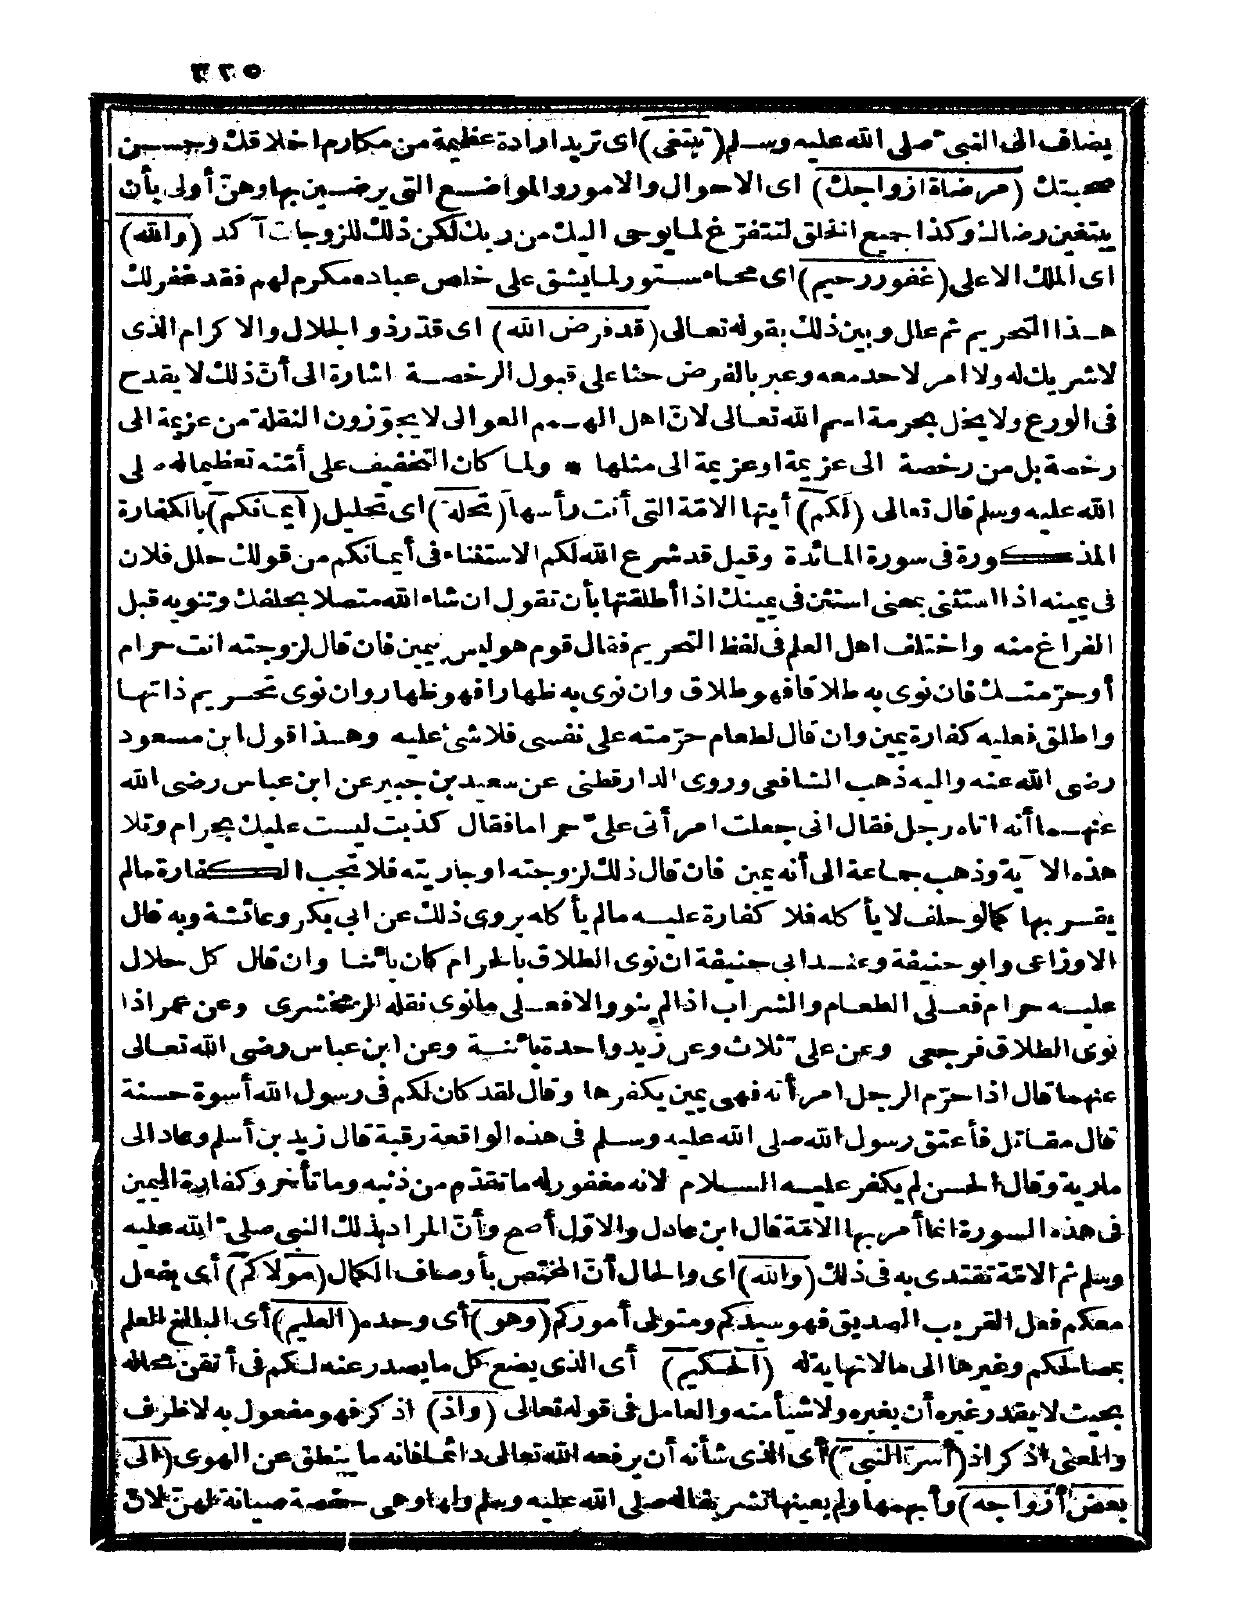 ٣٢٥
يضاف الى النبى صلى الله عليه وسلم (تبتغى) اى تريد ارادة عظيمة من مكارم اخلاقك وحسن
صحبتك (مرضاة ازواجك) اى الاحوال والامور والمواضع التى يرضين بها وهنّ أولى بأن
يبتغين رضاك وكذا جميع الخلق لتتفرّغ لما يوحى اليك من ربك لكن ذلك للزوجات آكد (والله)
اى الملك الاعلى (غفور رحيم) اى محاء ستور لما يشق على خاص عباده مكرم لهم فقد غفر لك
هذا التحريم ثم علل وبين ذلك بقوله تعالى (قد فرض الله) اى قدّر ذو الجلال والاكرام الذى
لاشريك له ولا امر لاحد معه وعبر بالفرض حثا على قبول الرخصة اشارة الى أنّ ذلك لا يقدح
فى الورع ولا يخل بحرمة اسم الله تعالى لانّ اهل الهمم العوالى لا يجوّزون النقلة من عزيمة الى
رخصة بل من رخصة الى عزيمة او عزيمة الى مثلها * ولما كان التخفيف على أمّته تعظيما له صلى
الله عليه وسلم قال تعالى (لكم) أيتها الامّة التى أنت رأسها (تحلة) اى تحليل (أيمانكم) بالكفارة
المذكورة فى سورة المائدة وقيل قد شرع الله لكم الاستثناء فى أيمانكم من قولك حلل فلان
فى يمينه اذا استثنى بمعنى استثن فى يمينك اذا أطلقتها بأن تقول ان شاء الله متصلا بحلفك وتنويه قبل
الفراغ منه واختلف اهل العلم فى لفظ التحريم فقال قوم هو ليس بيمين فان قال لزوجته انت حرام
أو حرّمتك فان نوى به طلاقا فهو طلاق وان نوى به ظهارا فهو ظهار وان نوى تحريم ذاتها
واطلق فعليه كفارة يمين وان قال لطعام حرّمته على نفسى فلا شئ عليه وهذا قول ابن مسعود
رضى الله عنه واليه ذهب الشافعى وروى الدارقطنى عن سعيد بن جبير عن ابن عباس رضى الله
عنهما أنه اتاه رجل فقال انى جعلت امرأتى علىّ حراما فقال كذبت ليست عليك بحرام وتلا
هذه الآية وذهب جماعة الى أنه يمين فان قال ذلك لزوجته او جاريته فلا تجب الكفارة مالم
يقربها كما لو حلف لا يأكله فلا كفارة عليه مالم يأكله يروى ذلك عن ابى بكر وعائشة وبه قال
الاوزاعى وابو حنيفة وعند ابى حنيفة ان نوى الطلاق بالحرام كان بائنا وان قال كل حلال
عليه حرام فعلى الطعام والشراب اذا لم ينو والا فعلى ما نوى نقله الزمخشرى وعن عمر اذا
نوى الطلاق فرجعى وعن علىّ ثلاث وعن زيد واحدة بائنة وعن ابن عباس رضى الله تعالى
عنهما قال اذا حرّم الرجل امرأته فهى يمين يكفرها وقال لقد كان لكم فى رسول الله أسوة حسنة
قال مقاتل فأعتق رسول الله صلى الله عليه وسلم فى هذه الواقعة رقبة قال زيد بن أسلم وعاد الى
مارية وقال الحسن لم يكفر عليه السلام لانه مغفور له ما تقدّم من ذنبه وما تأخر وكفارة اليمين
فى هذه السورة انما أمر بها الامّة قال ابن عادل والاوّل أصح وأنّ المراد بذلك النبى صلى الله عليه
وسلم ثم الامّة تقتدى به فى ذلك (والله) اى والحال أنّ المختص بأوصاف الكمال (مولاكم) أى يفعل
معكم فعل القريب الصديق فهو سيدكم ومتولى أموركم (وهو) أى وحده (العليم) أى البالغ العلم
بمصالحكم وغيرها الى ما لا نهاية له (الحكيم) أى الذى يضع كل ما يصدر عنه لكم فى أتقن محاله
بحيث لا يقدر غيره أن يغيره ولا شيأ منه والعامل فى قوله تعالى (واذ) اذكر فهو مفعول به لا ظرف
والمعنى اذكر اذ (أسرّ النبىّ) أى الذى شأنه أن يرفعه الله تعالى دائما فانه ما ينطق عن الهوى (الى
بعض أزواجه) وأبهمها ولم يعينها تشريفا له صلى الله عليه وسلم ولها وهى حفصة صيانة لهنّ لانّ